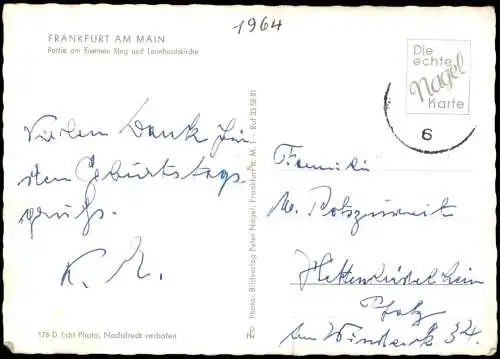 1964
FRANKFURT AM MAIN
Partie am Eisernen Steg und Leonhardskirche
Die
echte
Nagel
Karte
6
Vielen Dank für
den Geburtstags-
gruß.
K. N.
Photo- Bildverlag Peter Nagel, Frankfurt a. M. 1 - Ruf 33 58 81
Familie
Hettenleidelheim
Pfalz
Am Winderk 34.
176 D Echt Photo, Nachdruck verboten